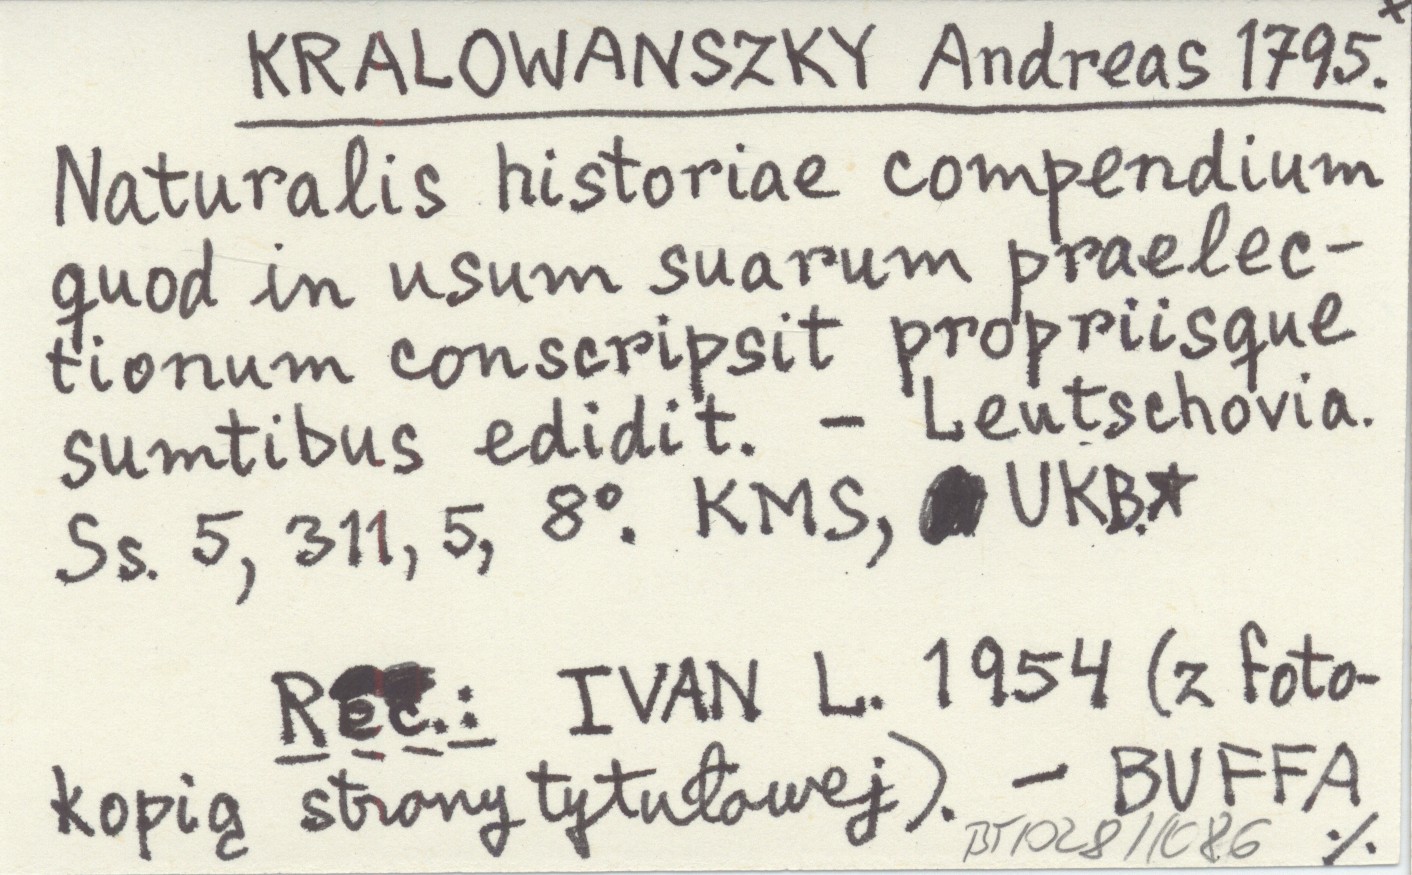 KRALOWANSZKY Andreas 1795.x
Naturalis historiae compendium
quod in usum suarum praelec-
tionum conscripsit propriisque
sumtibus edidit. – Leutschovia.
Ss. 5, 311, 5, 8°. KMS, UKB.*
Rec.: IVAN L. 1954 (z foto-
kopią strony tytułowej). – BUFFA
·/.